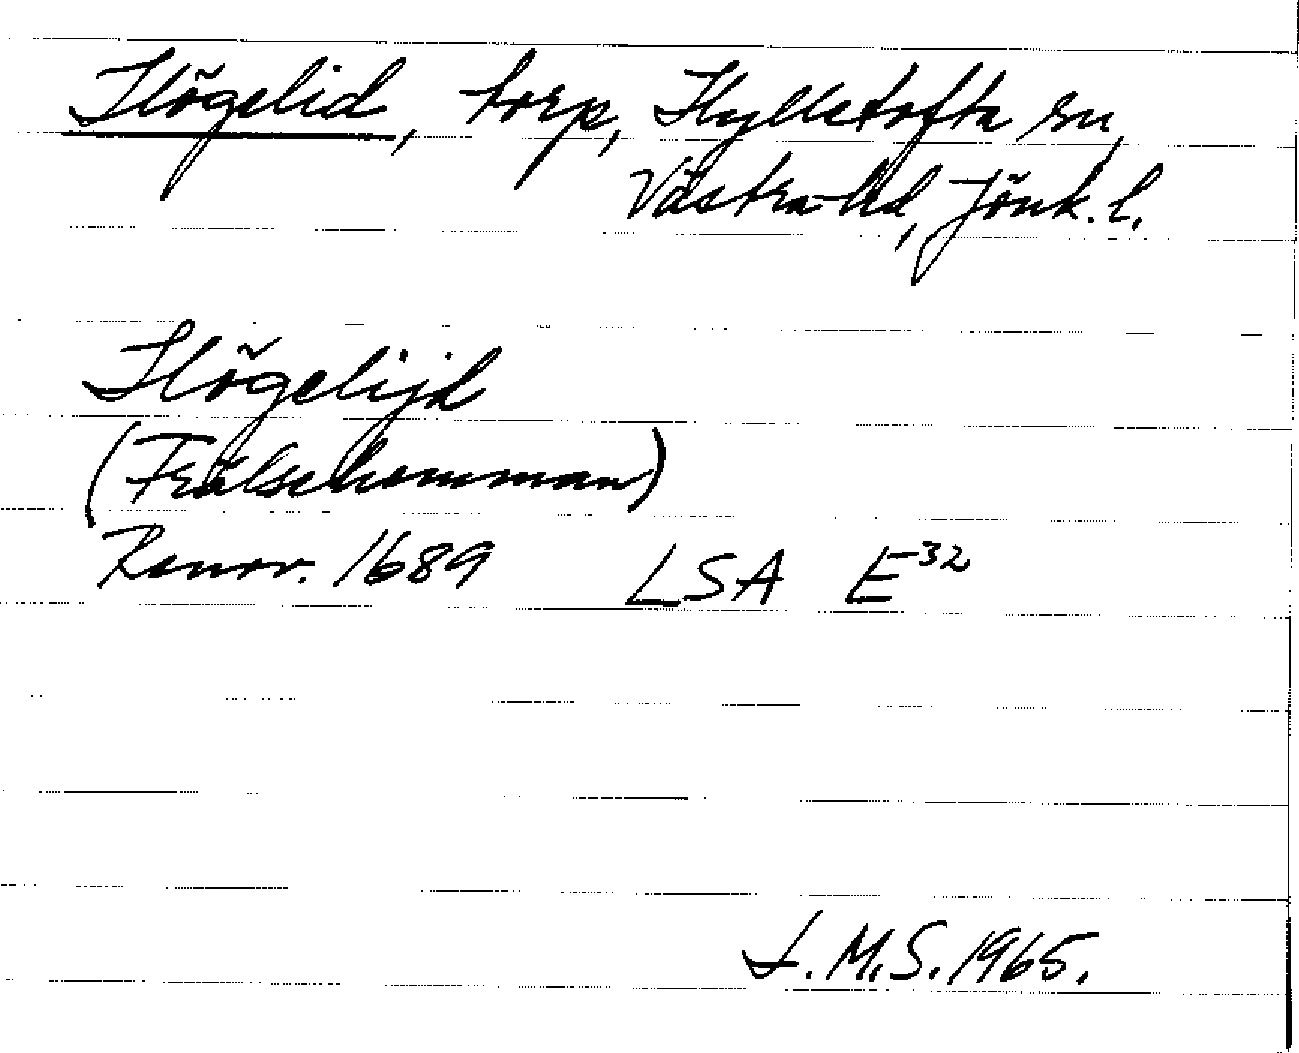 Högelid, torp, Hylletofta sn,
Västra hd, Jönk. l.
Högelijd
(Frälsehemman)
Renov. 1689 LSA E³²
I. M. S. 1965.